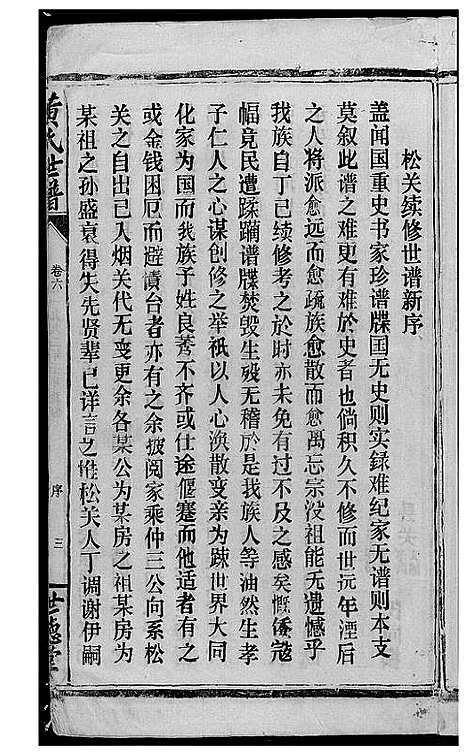 松关续修世谱新序
盖闻国重史书家珍谱牒国无史则实録难纪家无谱则本支
莫叙此谱之难更有难於史者也倘积久不修而世远年湮后
之人将派愈远而愈疏族愈散而愈离忘宗没祖能无遗憾乎
我族自丁己续修考之於时亦未免有过不及之感矣慨倭寇
幅竟民遭蹂躏谱牒焚毁生殁无稽於是我族人等油然生孝
子仁人之心谋创修之举祇以人心涣散变亲为踈世界大同
化家为国而我族子姓良莠不齐或仕途偃蹇而他适者有之
或金钱困厄而避债台者亦有之余披阅家乘仲三公向系松
关之自出己入烟关代无变更余各某公为某房之祖某房为
某祖之孙盛衰得失先贤辈已详言之惟松关人丁调谢伊嗣
黄氏世谱
卷六
序
三
世德堂